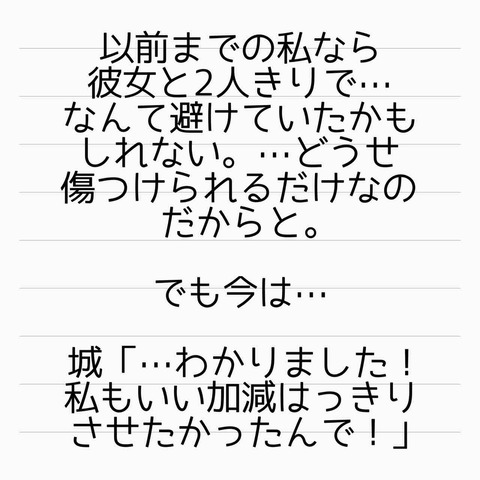 以前までの私なら
彼女と2人きりで…
なんて避けていたかも
しれない。…どうせ
傷つけられるだけなの
だからと。
でも今は…
城「…わかりました！
私もいい加減はっきり
させたかったんで！」